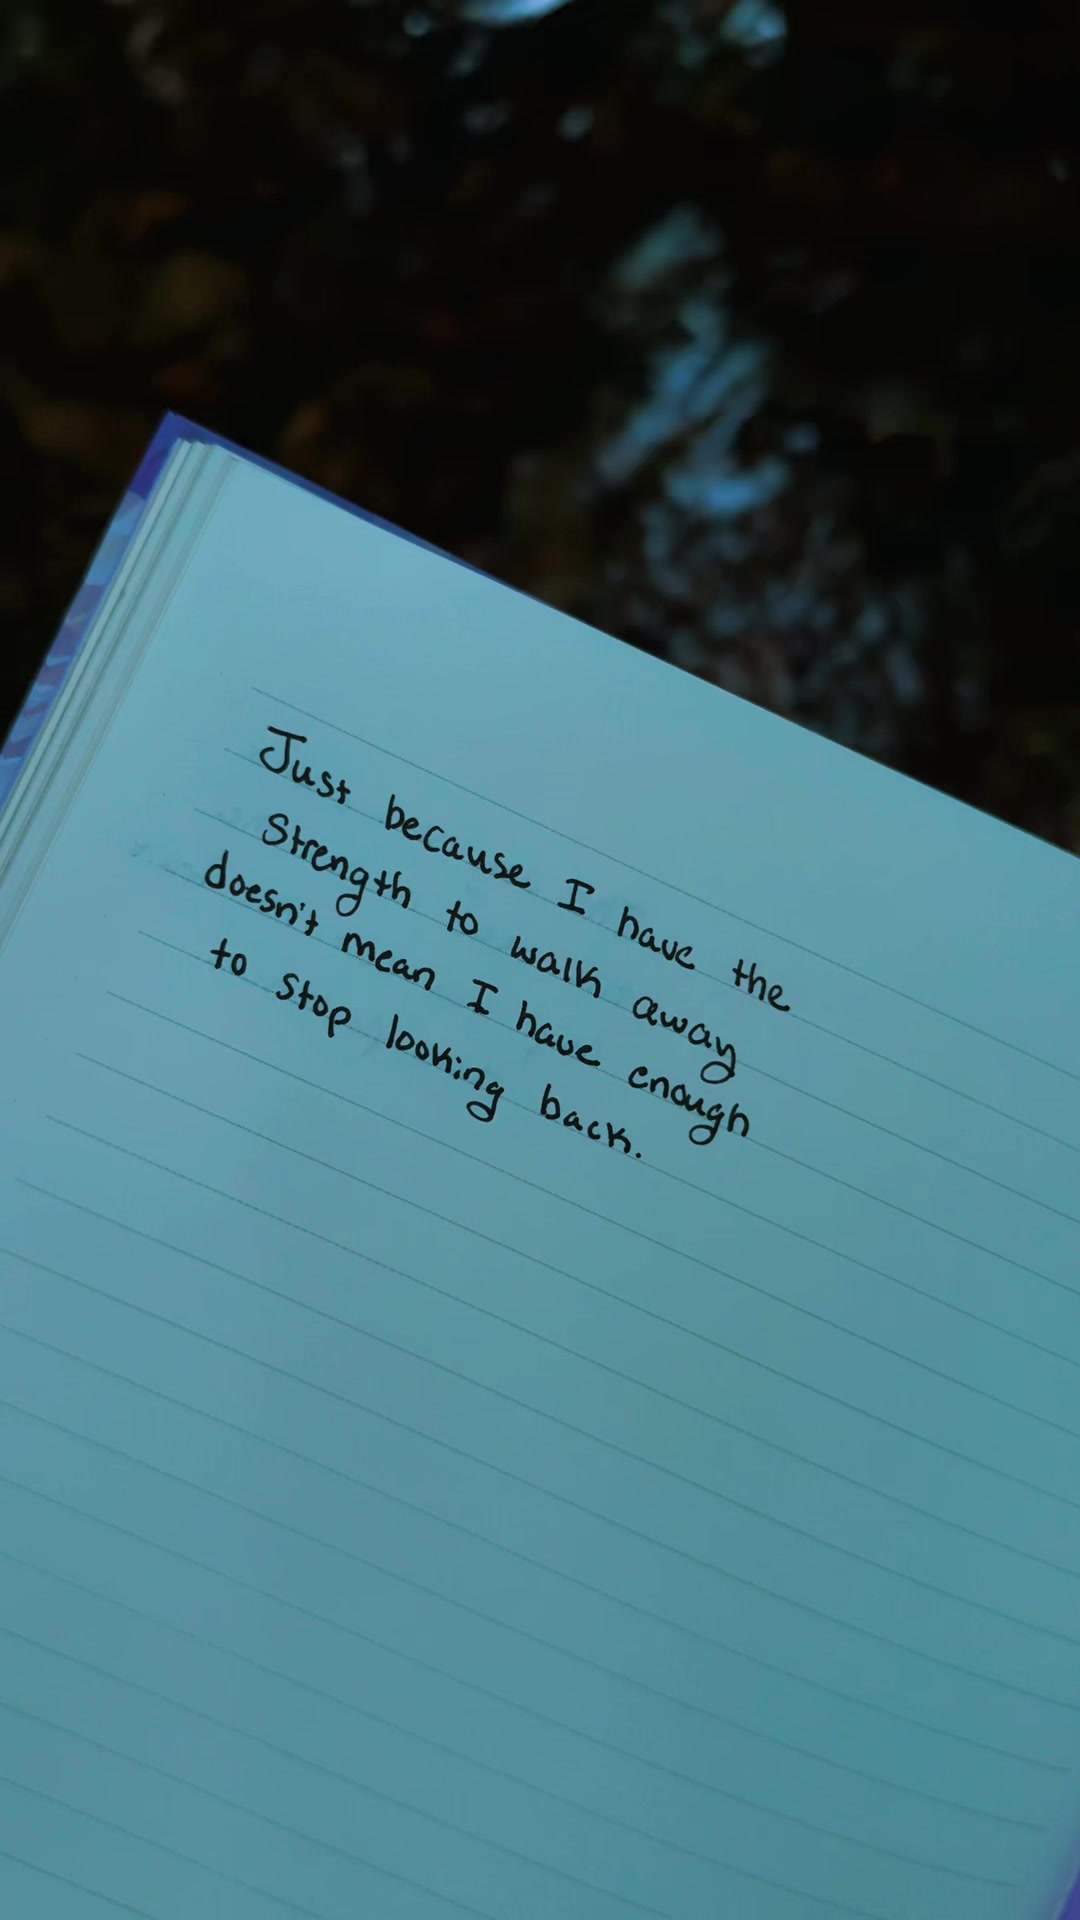 Just because I have the
Strength to walk away
doesn't mean I have enough
to stop looking back.